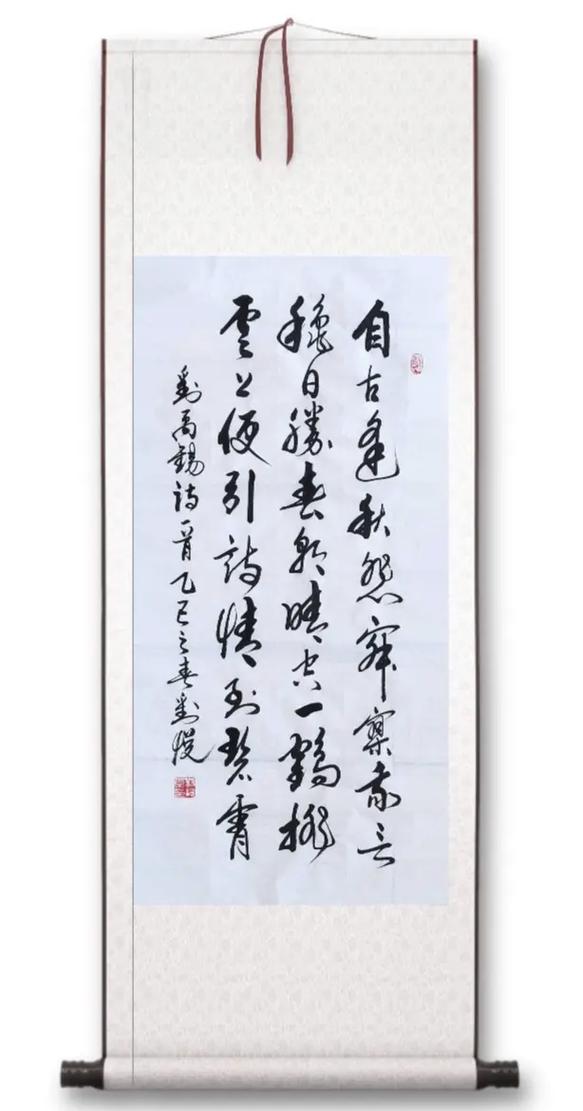 自古逢秋悲寂寥我言
穐日勝春朝晴空一鶴排
雲上便引詩情到碧霄
劉禹錫詩一首乙巳之春劉